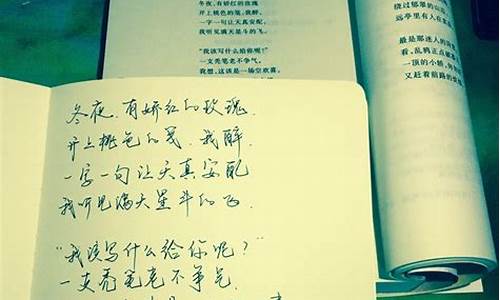 冬夜，有娇红的玫瑰，
开上桃色的笺，我醉，
一字一句让天真安配
我听见满天星斗的飞
“我该写什么给你呢？”
一支秃笔老不争气
冬夜，有娇红的玫瑰
开上桃色的笺，我醉，
一字一句让天真安配，
我听见满天星斗的飞。
“我该写什么给你呢？”
一支秃笔老不争气，
我想，这该是一场空欢喜，
绕过郁翠的山
远亭里有人在
最是那迷人的
看，乱鸦正点
一顶的小轿，
又赶着前路的